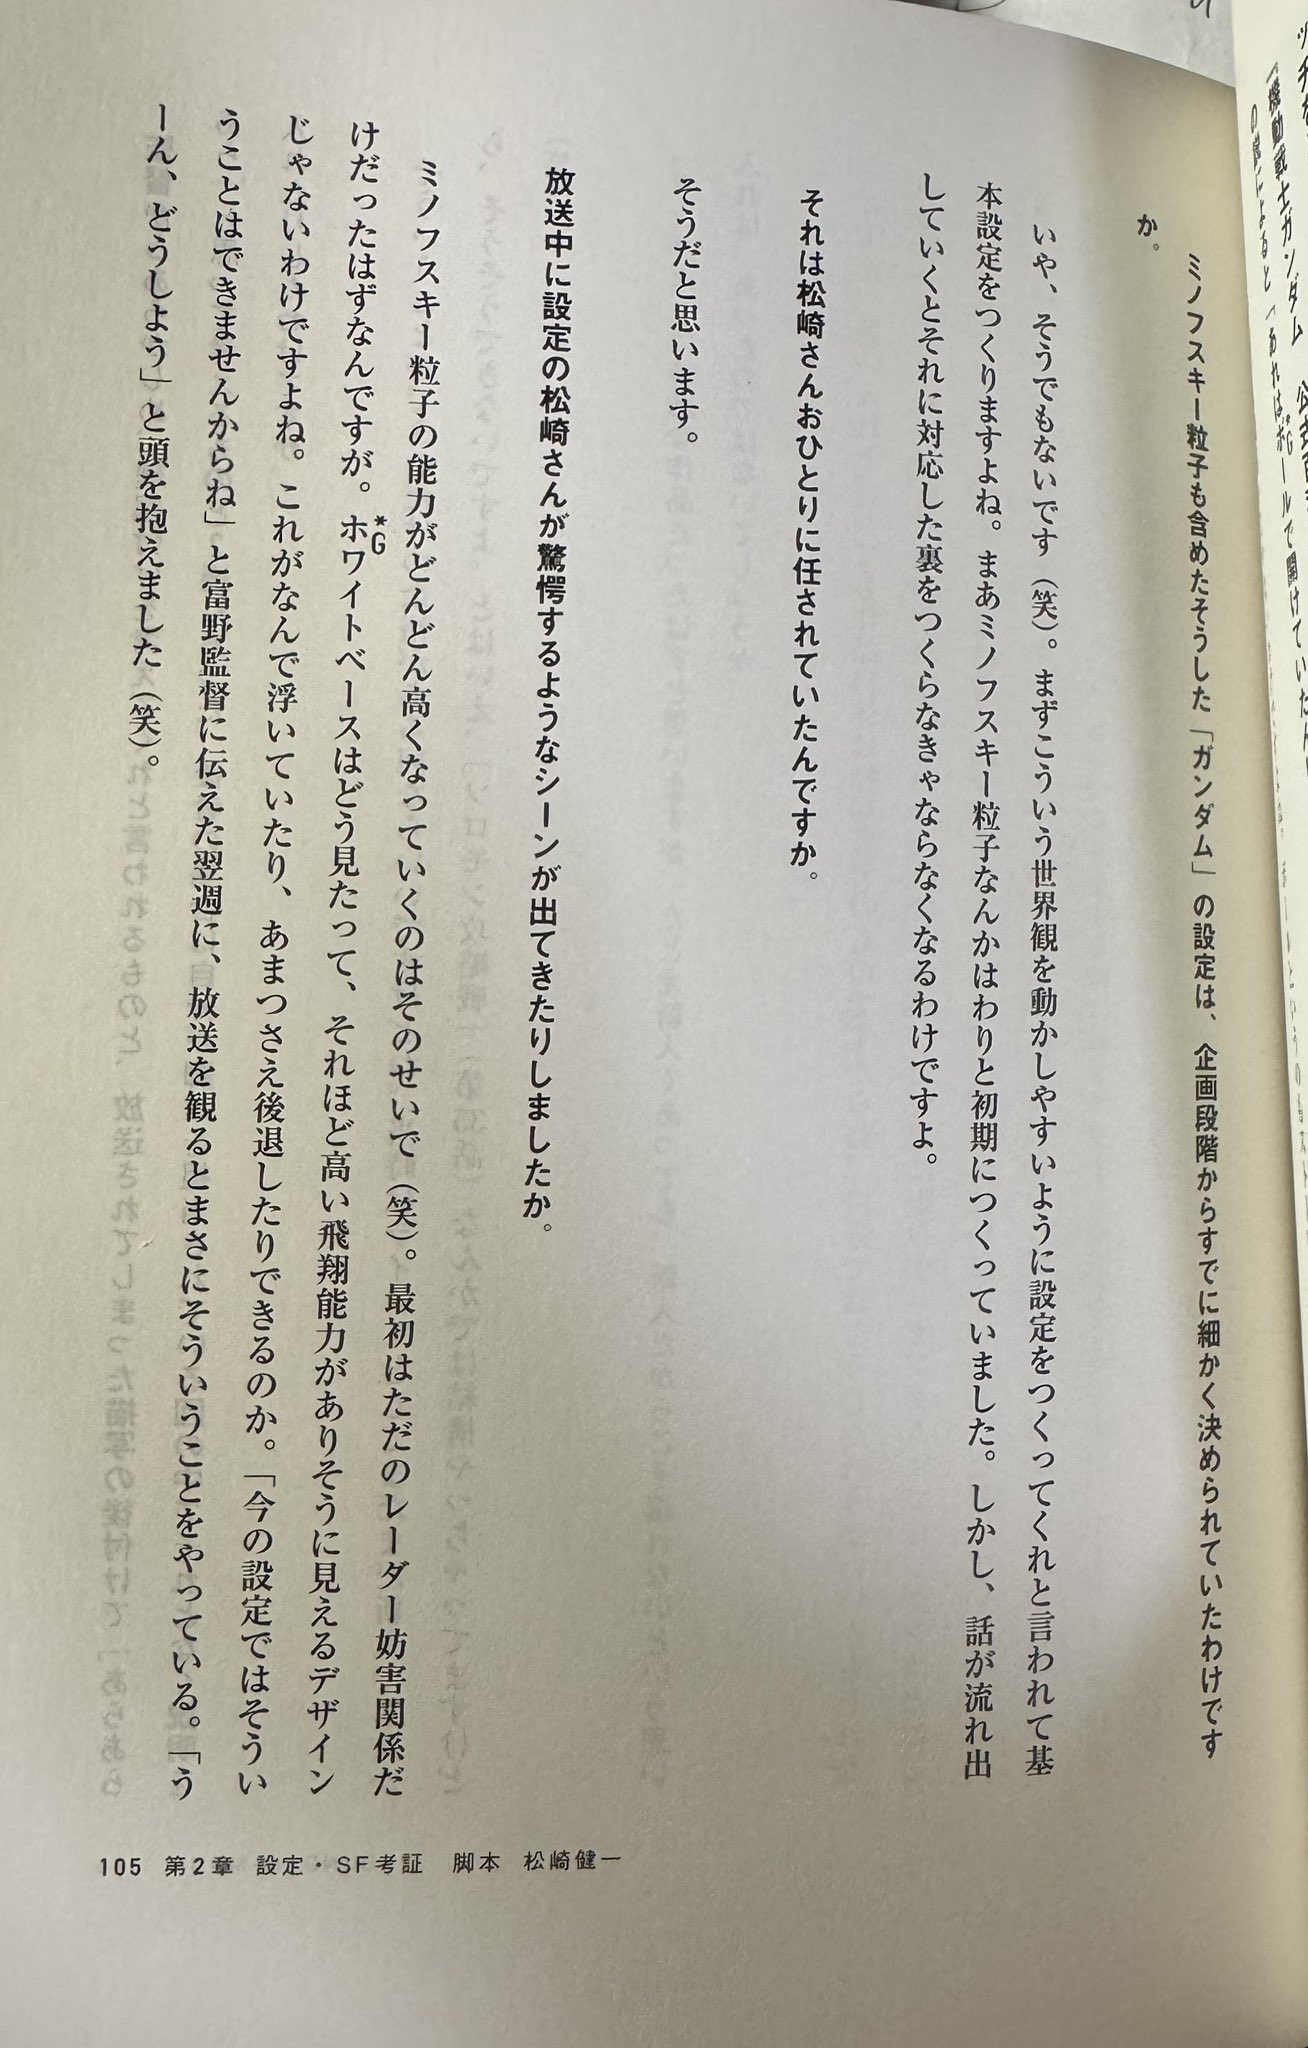 『機動戦士ガンダム
ミノフスキー粒子も含めたそうした「ガンダム」の設定は、企画段階からすでに細かく決められていたわけです
か。
いや、そうでもないです（笑）。まずこういう世界観を動かしやすいように設定をつくってくれと言われて基
本設定をつくりますよね。まあミノフスキー粒子なんかはわりと初期につくっていました。しかし、話が流れ出
していくとそれに対応した裏をつくらなきゃならなくなるわけですよ。
それは松崎さんおひとりに任されていたんですか。
そうだと思います。
放送中に設定の松崎さんが驚愕するようなシーンが出てきたりしましたか。
ミノフスキー粒子の能力がどんどん高くなっていくのはそのせいで（笑）。最初はただのレーダー妨害関係だ
けだったはずなんですが。ホワイトベースはどう見たって、それほど高い飛翔能力がありそうに見えるデザイン
*G
じゃないわけですよね。これがなんで浮いていたり、あまつさえ後退したりできるのか。「今の設定ではそうい
うことはできませんからね」と富野監督に伝えた翌週に、放送を観るとまさにそういうことをやっている。「う
ーん、どうしよう」と頭を抱えました（笑）。
105 第2章 設定・SF考証 脚本 松崎健一